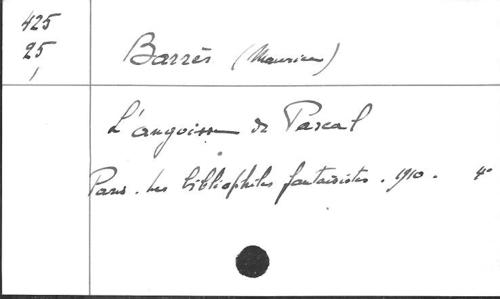 425
25
1
Barrès (Maurice)
L'angoisse de Pascal
Paris. Les bibliophiles fantaisistes. 1910. 4°